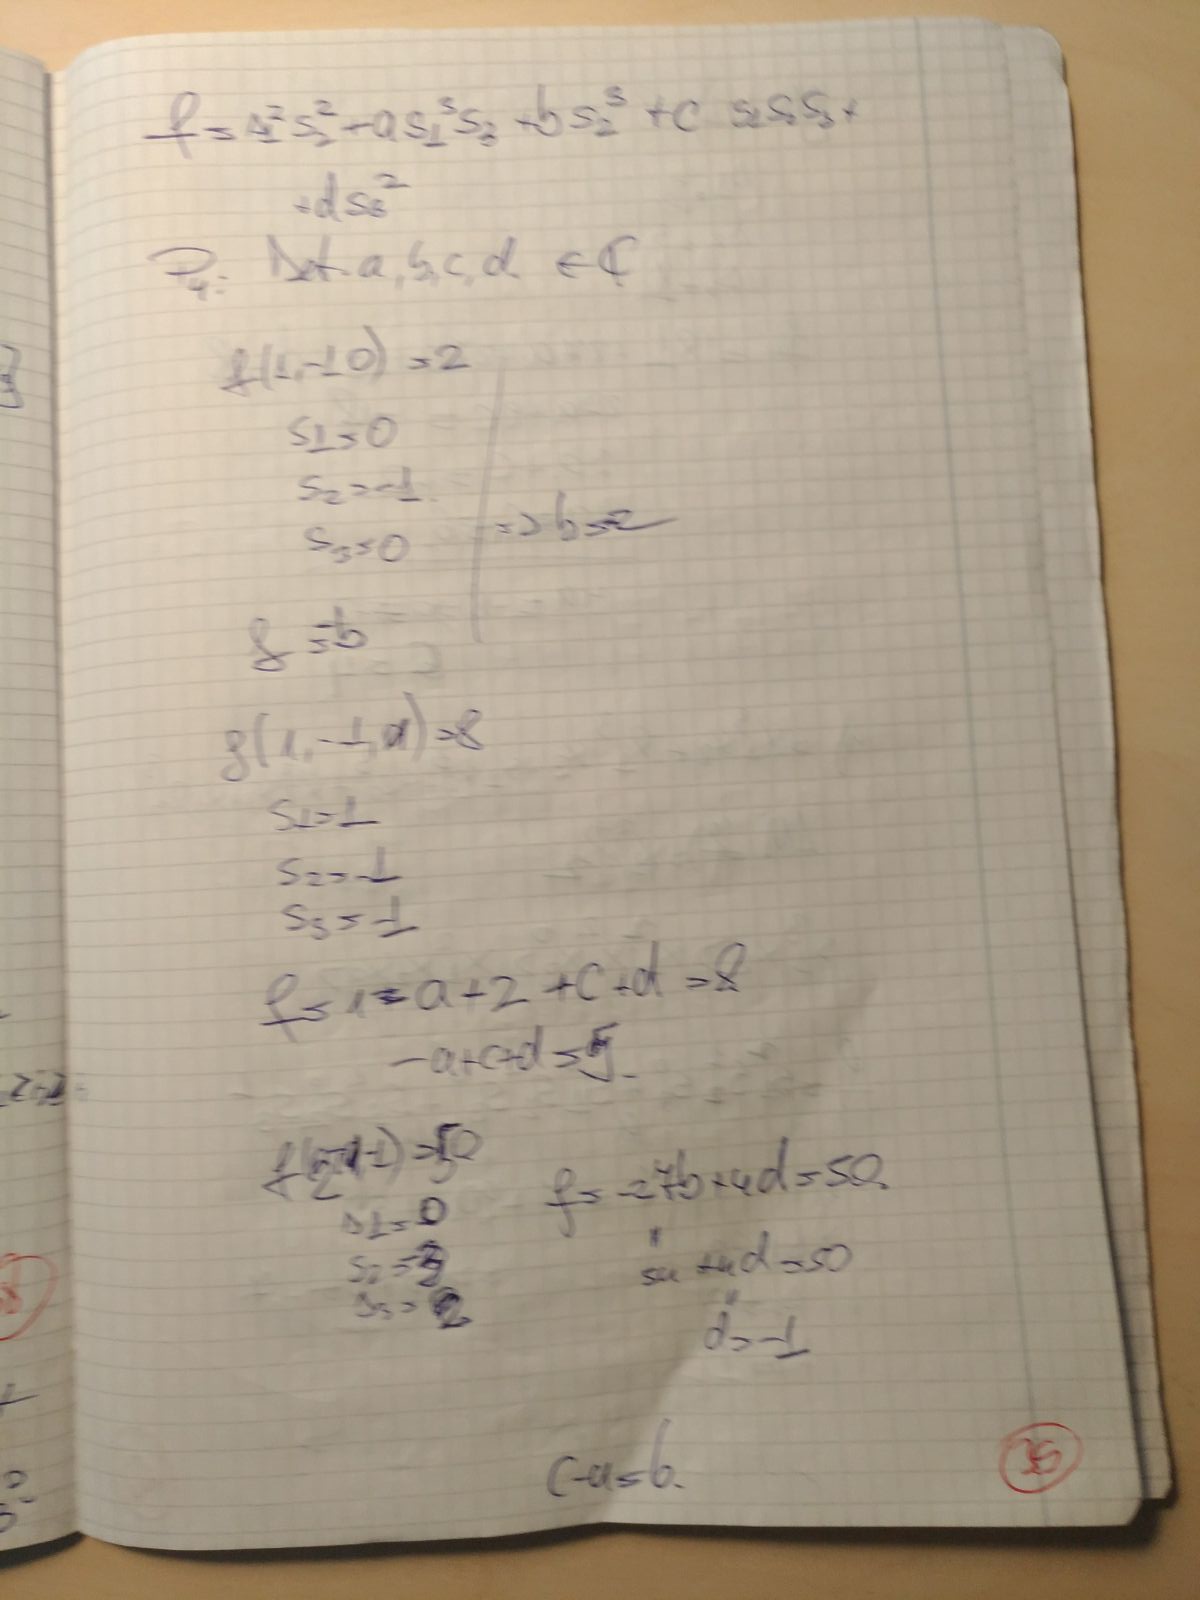 f = s₁²s₂² - as₁³s₃ + bs₂³ + c s₁s₂s₃ +
+ds₃²
P₄: Det. a, b, c, d ∈ ℂ
f(1,-1 0) = 2
s₁=0
s₂=-1
s₃=0
=> b=-2
f = -b
f(1,-1,1)=8
s₁=1
s₂=-1
s₃=-1
f = 1 - a+2 +c+d = 8
-a+c+d=5
f(2,-1,-1)=50
f= -27b+4d=50
s₁=0
s₂=-3
54 +4d=50
s₃=2
d=-1
c-a=6.
35